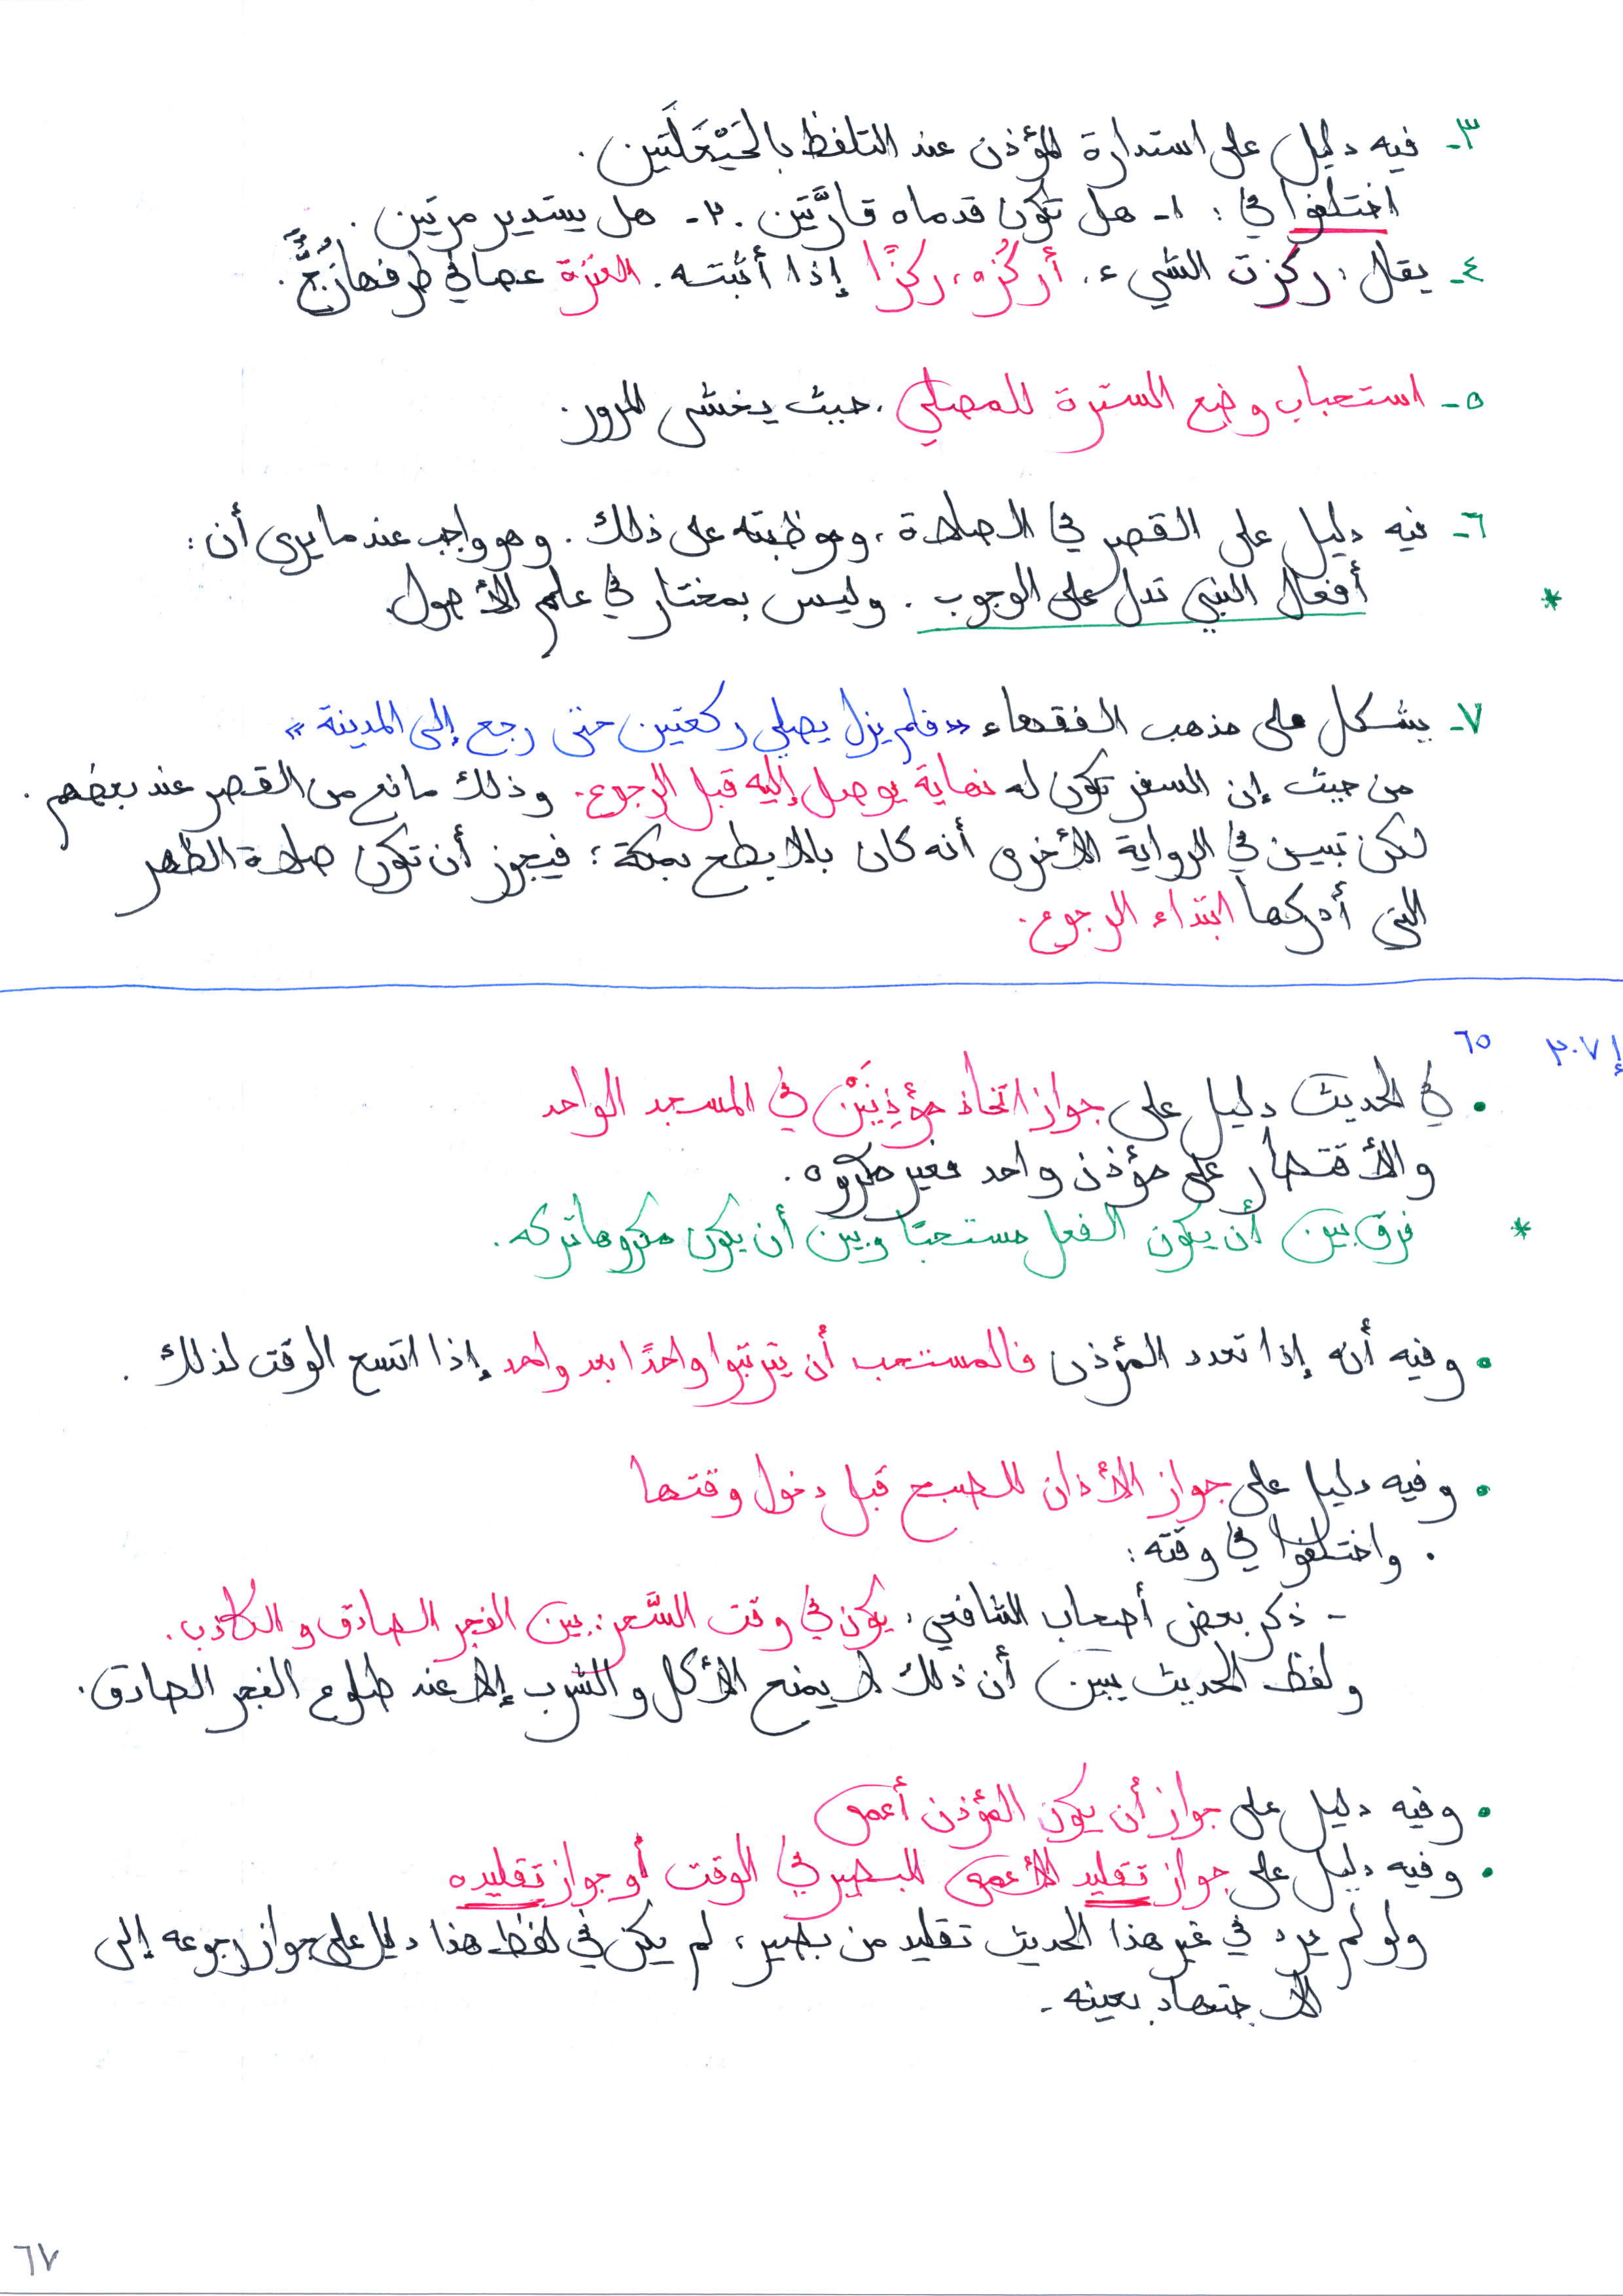 ٣- فيه دليل على استدارة المؤذن عند التلفظ بالحَيْعَلَتَين.
اختلفوا في: ١- هل تكون قدماه قارَّتَين. ٢- هل يستدير مرتين.
٤- يقال: ركزت الشيء، أركُزه، ركزًا إذا أثبته. العنزة عصا في طرفها زُجٌّ.
٥- استحباب وضع السترة للمصلي، حيث يخشى المرور.
٦- فيه دليل على القصر في الصلاة، ومواظبته على ذلك. وهو واجب عند ما يرى أن:
* أفعال النبي تدل على الوجوب. وليس بمختار في علم الأصول.
٧- يشكل على مذهب الفقهاء «فلم يزل يصلي ركعتين حتى رجع إلى المدينة»
من حيث إن السفر تكون له نهاية يوصل إليه قبل الرجوع. وذلك مانع من القصر عند بعضهم.
لكن تبيين في الرواية الأخرى أنه كان بالأبطح بمكة؛ فيجوز أن تكون صلاة الظهر
التي أدركها ابتداء الرجوع.
إ٢٠٧ ٦٥
• في الحديث دليل على جواز اتخاذ مؤذِنَيْن في المسجد الواحد
والأقتصار على مؤذن واحد فغير مكروه.
* فرق بين أن يكون الفعل مستحبًا وبين أن يكون مكروها تركه.
• وفيه أنه إذا تعدد المؤذن فالمستحب أن يترتبوا واحدًا بعد واحد إذا اتسع الوقت لذلك.
• وفيه دليل على جواز الأذان للصبح قبل دخول وقتها
. واختلفوا في وقته:
- ذكر بعض أصحاب الشافعي: يكون في وقت السَّحر: بين الفجر الصادق والكاذب.
ولفظ الحديث يبين أن ذلك لا يمنع الأكل والشرب إلا عند طلوع الفجر الصادق.
• وفيه دليل على جواز أن يكون المؤذن أعمى
• وفيه دليل على جواز تقليد الأعمى للبصير في الوقت أو جواز تقليده
ولو لم يرد في غير هذا الحديث تقليد من بصير، لم يكن في لفظ هذا دليل على جواز رجوعه إلى
الاجتهاد بعينه.
٦٧